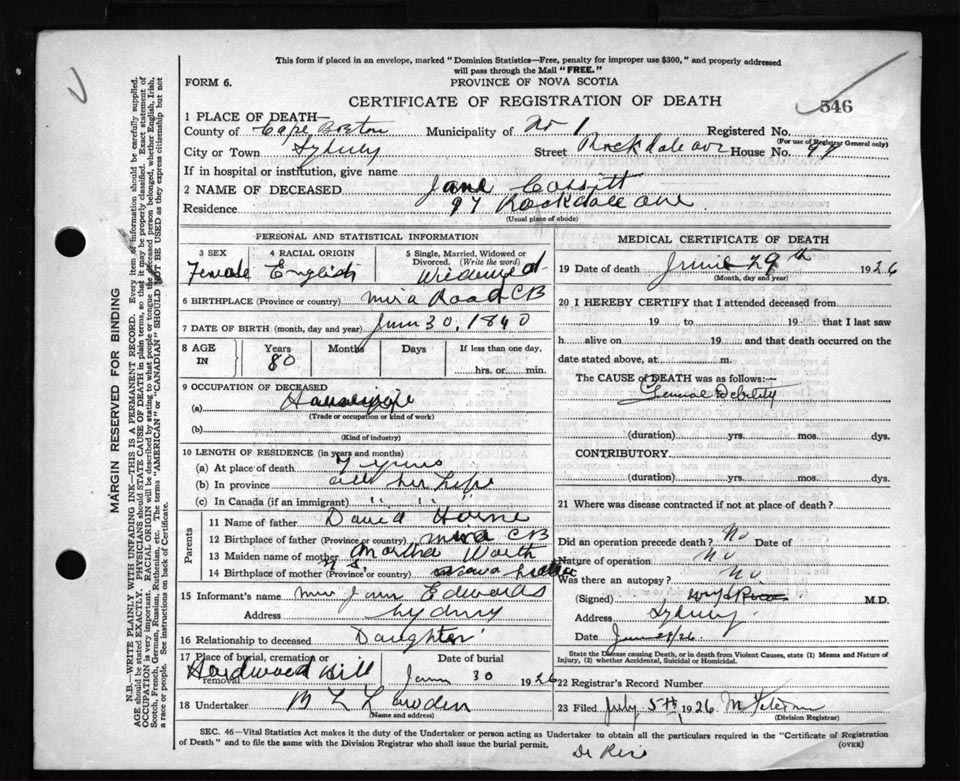 This form if placed in an envelope, marked "Dominion Statistics—Free, penalty for improper use $300," and properly addressed
will pass through the Mail "FREE."
FORM 6.
PROVINCE OF NOVA SCOTIA
CERTIFICATE OF REGISTRATION OF DEATH
546
1 PLACE OF DEATH—
County of Cape Breton Municipality of No 1 Registered No.
(For use of Registrar General only)
City or Town Sydney Street Rockdale ave House No. 97
If in hospital or institution, give name
2 NAME OF DECEASED Jane Cossitt
Residence 97 Rockdale ave
(Usual place of abode)
PERSONAL AND STATISTICAL INFORMATION
3 SEX Female
4 RACIAL ORIGIN English
5 Single, Married, Widowed or Divorced. (Write the word) Widowed
6 BIRTHPLACE (Province or country) Mira Road CB
7 DATE OF BIRTH (month, day and year) June 30, 1840
8 AGE IN Years 80 Months Days If less than one day, hrs. or min.
9 OCCUPATION OF DECEASED
(a) Housewife
(Trade or occupation or kind of work)
(b)
(Kind of industry)
10 LENGTH OF RESIDENCE (in years and months)
(a) At place of death 7 years
(b) In province all her life
(c) In Canada (if an immigrant) " " "
Parents
11 Name of father David
12 Birthplace of father (Province or country) Mira CB
13 Maiden name of mother Martha Worth
14 Birthplace of mother (Province or country) N S.
15 Informant's name Mrs Edwards
Address Sydney
16 Relationship to deceased Daughter
17 Place of burial, cremation or removal Hardwood Hill
Date of burial June 30 1926
18 Undertaker
(Name and address)
MEDICAL CERTIFICATE OF DEATH
19 Date of death June 29th 1926
(Month, day and year)
20 I HEREBY CERTIFY that I attended deceased from
19 to 19 that I last saw
h alive on 19 and that death occurred on the
date stated above, at m.
The CAUSE of DEATH was as follows:—
General Debility
(duration) yrs. mos. dys.
CONTRIBUTORY
(duration) yrs. mos. dys.
21 Where was disease contracted if not at place of death?
Did an operation precede death? No Date of
Nature of operation No
Was there an autopsy? No
(Signed) M.D.
Address Sydney
Date June /26
State the Disease causing Death, or in death from Violent Causes, state (1) Means and Nature of
Injury, (2) whether Accidental, Suicidal or Homicidal.
22 Registrar's Record Number
23 Filed July 5th, 1926
(Division Registrar)
SEC. 46—Vital Statistics Act makes it the duty of the Undertaker or person acting as Undertaker to obtain all the particulars required in the "Certificate of Registration
of Death" and to file the same with the Division Registrar who shall issue the burial permit.
(OVER)
MARGIN RESERVED FOR BINDING
N.B.—WRITE PLAINLY WITH UNFADING INK—THIS IS A PERMANENT RECORD. Every item of information should be carefully supplied.
AGE should be stated EXACTLY. PHYSICIANS should STATE CAUSE OF DEATH in plain terms, so that it may be properly classified. Exact statement of
OCCUPATION is very important. RACIAL ORIGIN will be described by stating to what people or tongue the deceased person belonged, whether English, Irish,
Scotch, French, German, Russian, Ruthenian, etc. The terms "AMERICAN" or "CANADIAN" SHOULD NOT BE USED as they express citizenship but not
a race or people. See instructions on back of Certificate.